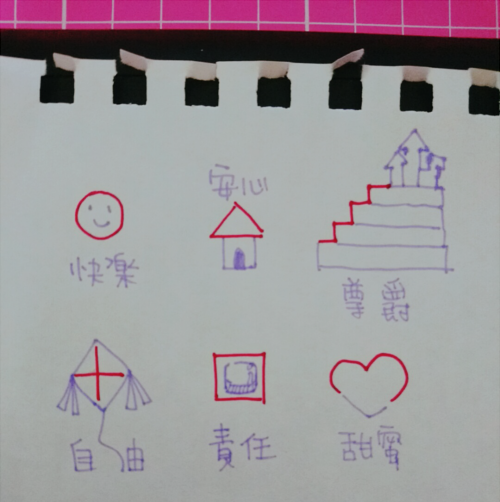 安心
快樂
尊爵
自由
責任
甜蜜